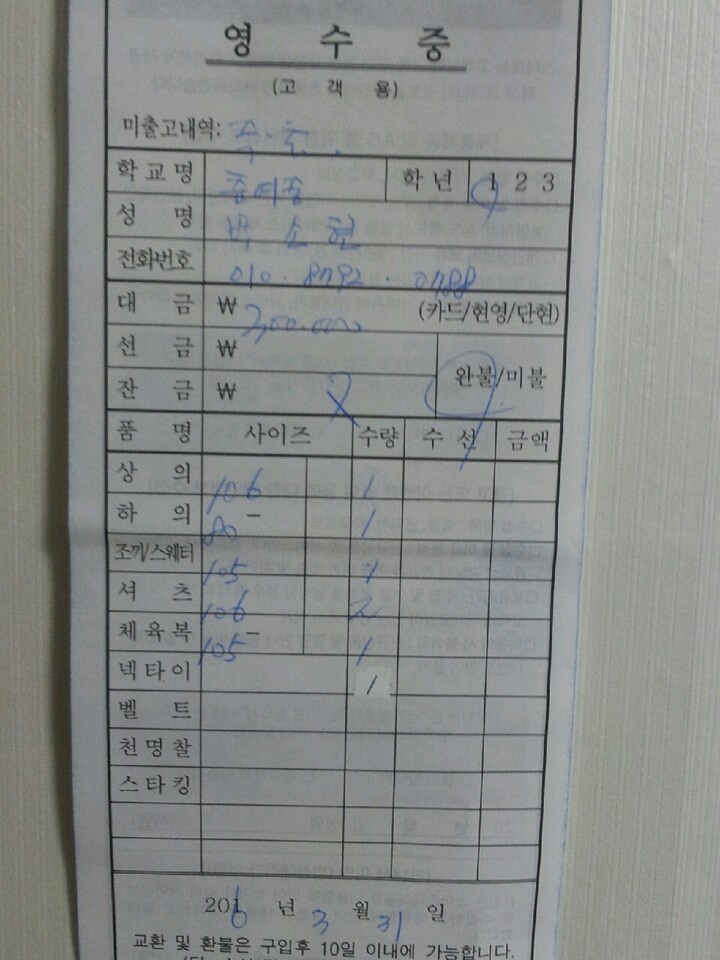 영 수 증
(고 객 용)
미출고내역:
학교명 학년 1 2 3
성 명 박소현
전화번호 010 . 8792 . 0788
대 금 ₩ 300.000 (카드/현영/단현)
선 금 ₩ 완불/미불
잔 금 ₩ X
품 명 사이즈 수량 수 선 금액
상 의 106 1
하 의 80 - 1
조끼/스웨터 105 1
셔 츠 106 2
체육복 105 - 1
넥타이 1
벨 트
천명찰
스타킹
2016 년 3 월 31 일
교환 및 환불은 구입후 10일 이내에 가능합니다.